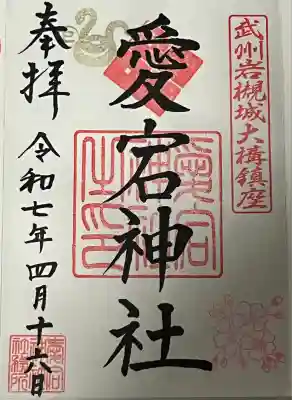 武州岩槻城大構鎮座
愛宕神社
愛宕神社之印
奉拝
令和七年四月十六日